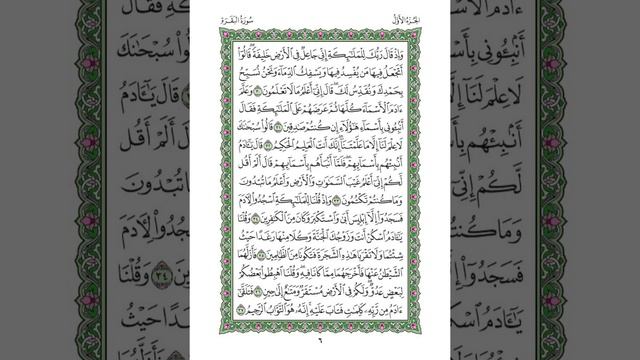 الجزء الأول
سورة البقرة
وَإِذْ قَالَ رَبُّكَ لِلْمَلَٰٓئِكَةِ إِنِّي جَاعِلٌ فِي ٱلْأَرْضِ خَلِيفَةً ۖ قَالُوٓا۟
أَتَجْعَلُ فِيهَا مَن يُفْسِدُ فِيهَا وَيَسْفِكُ ٱلدِّمَآءَ وَنَحْنُ نُسَبِّحُ
بِحَمْدِكَ وَنُقَدِّسُ لَكَ ۖ قَالَ إِنِّيٓ أَعْلَمُ مَا لَا تَعْلَمُونَ ٣٠ وَعَلَّمَ
ءَادَمَ ٱلْأَسْمَآءَ كُلَّهَا ثُمَّ عَرَضَهُمْ عَلَى ٱلْمَلَٰٓئِكَةِ فَقَالَ
أَنۢبِـُٔونِي بِأَسْمَآءِ هَٰٓؤُلَآءِ إِن كُنتُمْ صَٰدِقِينَ ٣١ قَالُوا۟ سُبْحَٰنَكَ
لَا عِلْمَ لَنَآ إِلَّا مَا عَلَّمْتَنَآ ۖ إِنَّكَ أَنتَ ٱلْعَلِيمُ ٱلْحَكِيمُ ٣٢ قَالَ يَٰٓـَٔادَمُ
أَنۢبِئْهُم بِأَسْمَآئِهِمْ ۖ فَلَمَّآ أَنۢبَأَهُم بِأَسْمَآئِهِمْ قَالَ أَلَمْ أَقُل
لَّكُمْ إِنِّيٓ أَعْلَمُ غَيْبَ ٱلسَّمَٰوَٰتِ وَٱلْأَرْضِ وَأَعْلَمُ مَا تُبْدُونَ
وَمَا كُنتُمْ تَكْتُمُونَ ٣٣ وَإِذْ قُلْنَا لِلْمَلَٰٓئِكَةِ ٱسْجُدُوا۟ لِـَٔادَمَ
فَسَجَدُوٓا۟ إِلَّآ إِبْلِيسَ أَبَىٰ وَٱسْتَكْبَرَ وَكَانَ مِنَ ٱلْكَٰفِرِينَ ٣٤ وَقُلْنَا
يَٰٓـَٔادَمُ ٱسْكُنْ أَنتَ وَزَوْجُكَ ٱلْجَنَّةَ وَكُلَا مِنْهَا رَغَدًا حَيْثُ
شِئْتُمَا وَلَا تَقْرَبَا هَٰذِهِ ٱلشَّجَرَةَ فَتَكُونَا مِنَ ٱلظَّٰلِمِينَ ٣٥ فَأَزَلَّهُمَا
ٱلشَّيْطَٰنُ عَنْهَا فَأَخْرَجَهُمَا مِمَّا كَانَا فِيهِ ۖ وَقُلْنَا ٱهْبِطُوا۟ بَعْضُكُمْ
لِبَعْضٍ عَدُوٌّ ۖ وَلَكُمْ فِي ٱلْأَرْضِ مُسْتَقَرٌّ وَمَتَٰعٌ إِلَىٰ حِينٍ ٣٦ فَتَلَقَّىٰٓ
ءَادَمُ مِن رَّبِّهِۦ كَلِمَٰتٍ فَتَابَ عَلَيْهِ ۚ إِنَّهُۥ هُوَ ٱلتَّوَّابُ ٱلرَّحِيمُ ٣٧
٦